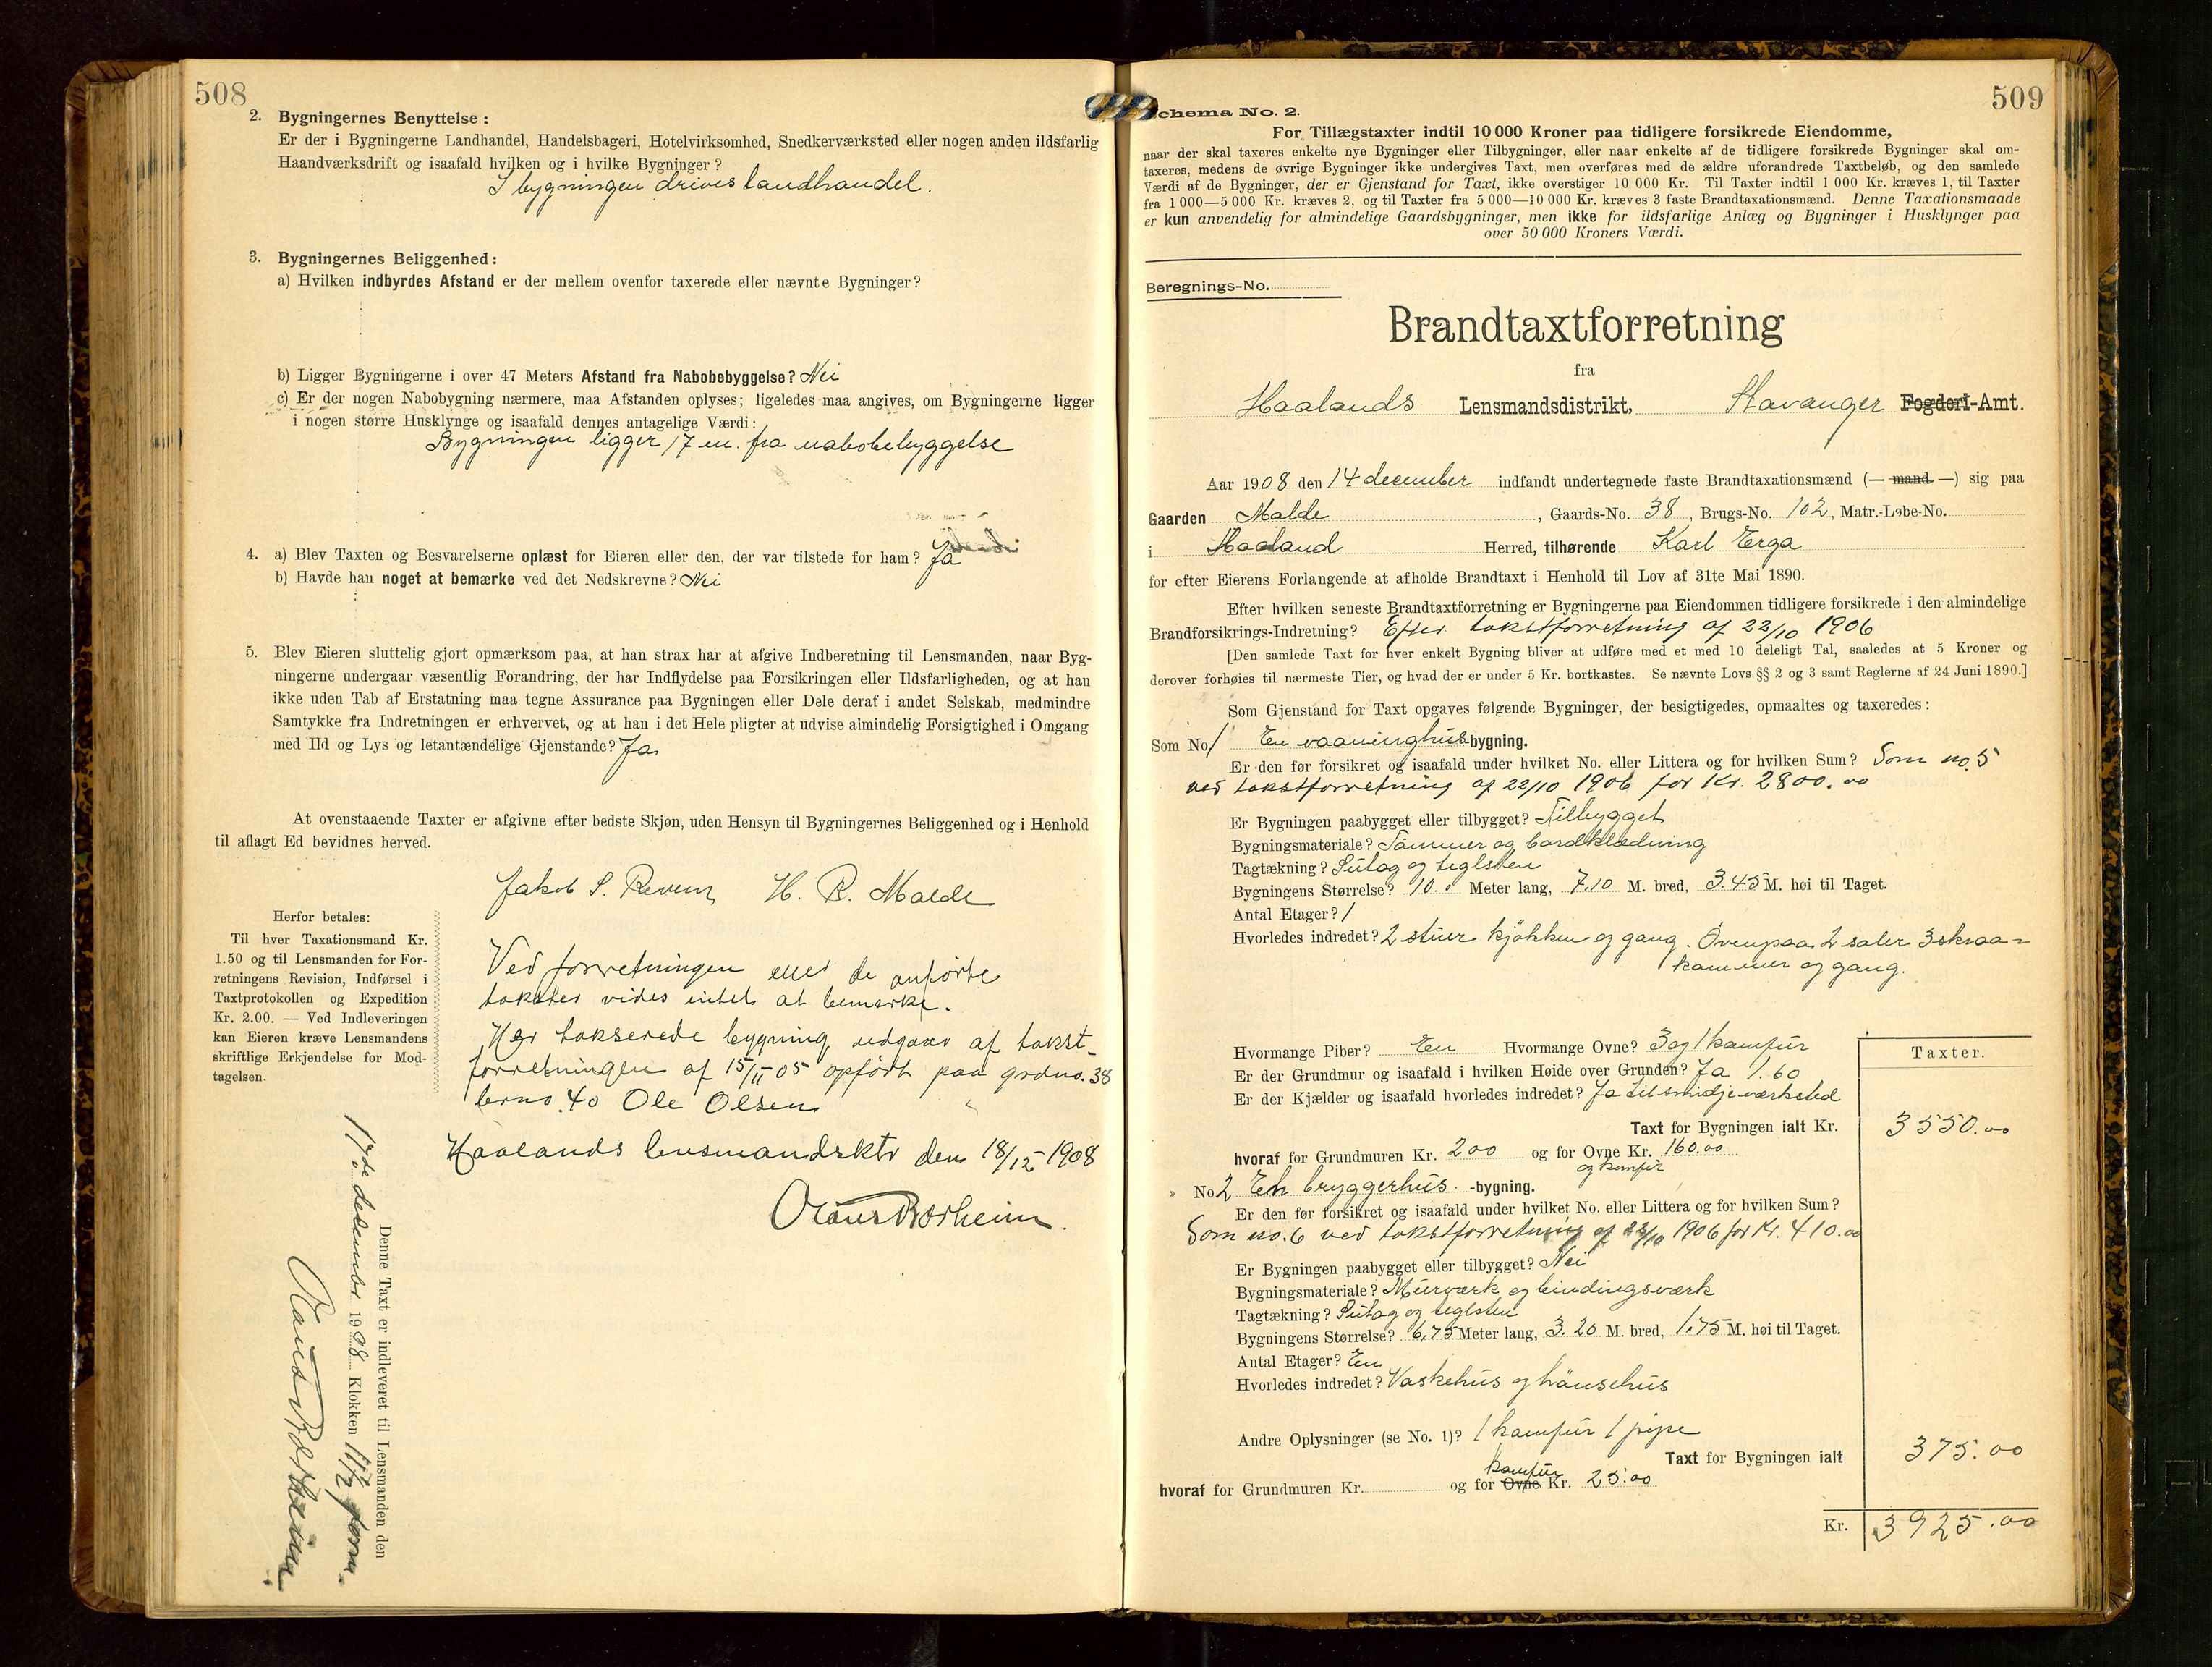 508
2. Bygningernes Benyttelse:
Er der i Bygningerne Landhandel, Handelsbageri, Hotelvirksomhed, Snedkerværksted eller nogen anden ildsfarlig
Haandværksdrift og isaafald hvilken og i hvilke Bygninger?
I bygningen drives landhandel.
3. Bygningernes Beliggenhed:
a) Hvilken indbyrdes Afstand er der mellem ovenfor taxerede eller nævnte Bygninger?
b) Ligger Bygningerne i over 47 Meters Afstand fra Nabobebyggelse? Nei
c) Er der nogen Nabobygning nærmere, maa Afstanden oplyses; ligeledes maa angives, om Bygningerne ligger
i nogen større Husklynge og isaafald dennes antagelige Værdi:
Bygningen ligger 17 m. fra nabobebyggelse
4. a) Blev Taxten og Besvarelserne oplæst for Eieren eller den, der var tilstede for ham? Ja
b) Havde han noget at bemærke ved det Nedskrevne? Nei
5. Blev Eieren sluttelig gjort opmærksom paa, at han strax har at afgive Indberetning til Lensmanden, naar Byg-
ningerne undergaar væsentlig Forandring, der har Indflydelse paa Forsikringen eller Ildsfarligheden, og at han
ikke uden Tab af Erstatning maa tegne Assurance paa Bygningen eller Dele deraf i andet Selskab, medmindre
Samtykke fra Indretningen er erhvervet, og at han i det Hele pligter at udvise almindelig Forsigtighed i Omgang
med Ild og Lys og letantændelige Gjenstande? Ja
At ovenstaaende Taxter er afgivne efter bedste Skjøn, uden Hensyn til Bygningernes Beliggenhed og i Henhold
til aflagt Ed bevidnes herved.
Jakob S. H. R. Malde
Herfor betales:
Til hver Taxationsmand Kr.
1.50 og til Lensmanden for For-
retningens Revision, Indførsel i
Taxtprotokollen og Expedition
Kr. 2.00. — Ved Indleveringen
kan Eieren kræve Lensmandens
skriftlige Erkjendelse for Mod-
tagelsen.
Ved forretningen eller de anførte
takster vides intet at bemærke.
Her takserede bygning udgaar af takst-
forretningen af 15/11 05 opført paa grdno. 38
brno. 40 Ole Olsen
Haalands lensmandsktr den 18/12 1908
Olaus Borheim.
Denne Taxt er indleveret til Lensmanden den
17de december 1908 Klokken 11 1/2 form.
Olaus Borheim
509
Schema No. 2.
For Tillægstaxter indtil 10 000 Kroner paa tidligere forsikrede Eiendomme,
naar der skal taxeres enkelte nye Bygninger eller Tilbygninger, eller naar enkelte af de tidligere forsikrede Bygninger skal om-
taxeres, medens de øvrige Bygninger ikke undergives Taxt, men overføres med de ældre uforandrede Taxtbeløb, og den samlede
Værdi af de Bygninger, der er Gjenstand for Taxt, ikke overstiger 10 000 Kr. Til Taxter indtil 1 000 Kr. kræves 1, til Taxter
fra 1 000—5 000 Kr. kræves 2, og til Taxter fra 5 000—10 000 Kr. kræves 3 faste Brandtaxationsmænd. Denne Taxationsmaade
er kun anvendelig for almindelige Gaardsbygninger, men ikke for ildsfarlige Anlæg og Bygninger i Husklynger paa
over 50 000 Kroners Værdi.
Beregnings-No.
Brandtaxtforretning
fra
Haalands Lensmandsdistrikt, Stavanger Fogderi-Amt.
Aar 1908 den 14 december indfandt undertegnede faste Brandtaxationsmænd (— mand —) sig paa
Gaarden Malde, Gaards-No. 38, Brugs-No. 102, Matr.-Løbe-No.
i Haaland Herred, tilhørende Karl Erga
for efter Eierens Forlangende at afholde Brandtaxt i Henhold til Lov af 31te Mai 1890.
Efter hvilken seneste Brandtaxtforretning er Bygningerne paa Eiendommen tidligere forsikrede i den almindelige
Brandforsikrings-Indretning? Efter takstforretning af 22/10 1906
[Den samlede Taxt for hver enkelt Bygning bliver at udføre med et med 10 deleligt Tal, saaledes at 5 Kroner og
derover forhøies til nærmeste Tier, og hvad der er under 5 Kr. bortkastes. Se nævnte Lovs §§ 2 og 3 samt Reglerne af 24 Juni 1890.]
Som Gjenstand for Taxt opgaves følgende Bygninger, der besigtigedes, opmaaltes og taxeredes:
Som No 1 En vaaninghus-bygning.
Er den før forsikret og isaafald under hvilket No. eller Littera og for hvilken Sum? Som no. 5
ved takstforretning af 22/10 1906 for Kr. 2800.00
Er Bygningen paabygget eller tilbygget? Tilbygget
Bygningsmateriale? Tømmer og bordklædning
Tagtækning? Sutag og teglsten
Bygningens Størrelse? 10.0 Meter lang, 7.10 M. bred, 3.45 M. høi til Taget.
Antal Etager? 1
Hvorledes indredet? 2 stuer kjøkken og gang. Ovenpaa 2 saler 3 skraa-
kammer og gang.
Hvormange Piber? En Hvormange Ovne? 3 og 1 kamfur
Er der Grundmur og isaafald i hvilken Høide over Grunden? Ja 1.60
Er der Kjælder og isaafald hvorledes indredet? Ja til smidjeværksted
Taxter.
Taxt for Bygningen ialt Kr. 3550.00
hvoraf for Grundmuren Kr. 200 og for Ovne Kr. 160.00
og kamfur
No 2 En bryggerhus -bygning.
Er den før forsikret og isaafald under hvilket No. eller Littera og for hvilken Sum?
Som no. 6 ved takstforretning af 22/10 1906 for Kr. 410.00
Er Bygningen paabygget eller tilbygget? Nei
Bygningsmateriale? Murværk og bindingsværk
Tagtækning? Sutag og teglsten
Bygningens Størrelse? 6,75 Meter lang, 3.20 M. bred, 1.75 M. høi til Taget.
Antal Etager? En
Hvorledes indredet? Vaskehus og hønsehus
Andre Oplysninger (se No. 1)? 1 kamfur 1 pipe
Taxt for Bygningen ialt 375.00
kamfur
hvoraf for Grundmuren Kr. og for Ovne Kr. 25.00
Kr. 3925.00